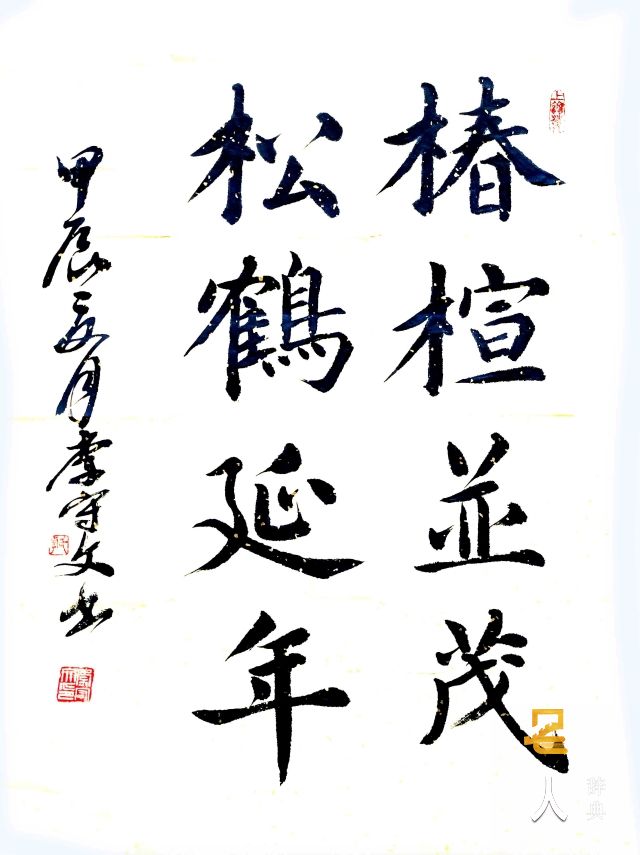 椿楦並茂
松鶴延年
甲辰二月李守文书
名人
辞典